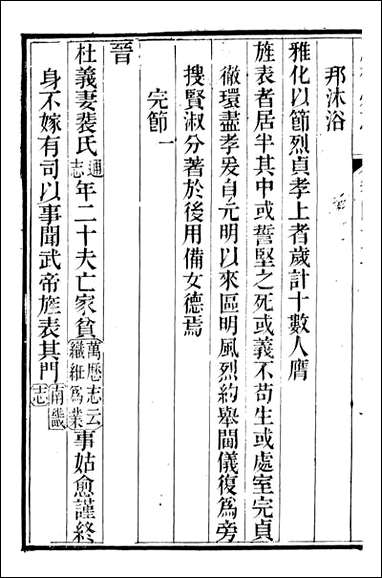 邦沐浴
雅化以節烈貞孝上者歲計十數人膺
旌表者居半其中或誓堅之死或義不苟生或處室完貞
徹環盡孝爰自元明以來區明風烈約舉閫儀復為旁
搜賢淑分著於後用備女德焉
完節一
晉
杜義妻裴氏通志年二十夫亡家貧萬歷志云織紝為業事姑愈謹終
身不嫁有司以事聞武帝旌表其門南畿志